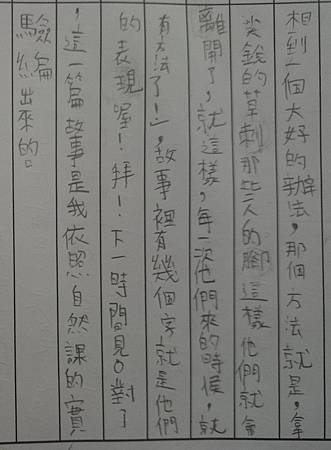 想到一個大好的辦法，那個方法就是，拿
尖銳的草刺那些人的腳這樣他們就會
離開了，就這樣，每一次他們來的時候，就
有方法了！」，故事裡有幾個字就是他們
的表現喔！拜！下一時間見。對了
，這一篇故事是我依照自然課的實
驗編出來的。